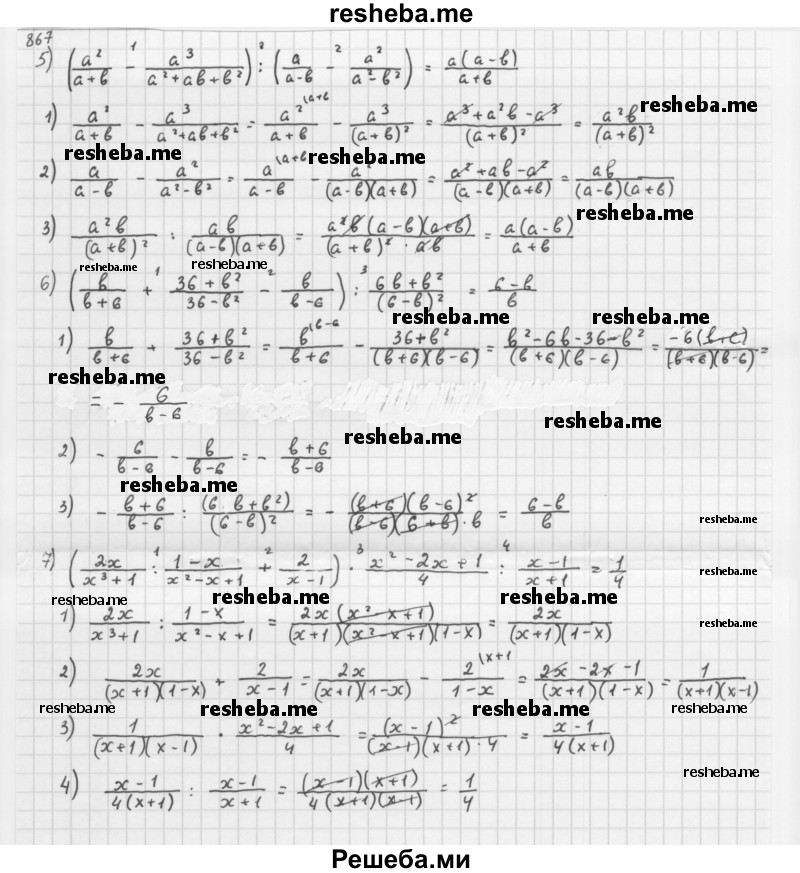 resheba.me
867
5) (a²/(a+b) - a³/(a²+ab+b²)) : (a/(a-b) - a²/(a²-b²)) = a(a-b)/(a+b)
1) a²/(a+b) - a³/(a²+ab+b²) = a² \a+b/(a+b) - a³/(a+b)² = (a³+a²b-a³)/(a+b)² = a²b/(a+b)²
resheba.me
resheba.me resheba.me
2) a/(a-b) - a²/(a²-b²) = a \a+b/(a-b) - a²/((a-b)(a+b)) = (a²+ab-a²)/((a-b)(a+b)) = ab/((a-b)(a+b))
resheba.me
3) a²b/(a+b)² : ab/((a-b)(a+b)) = a²b(a-b)(a+b)/((a+b)²·ab) = a(a-b)/(a+b)
resheba.me resheba.me
6) (b/(b+6) + (36+b²)/(36-b²) - b/(b-6)) : (6b+b²)/(6-b)² = (6-b)/b
resheba.me resheba.me
1) b/(b+6) + (36+b²)/(36-b²) = b \b-6/(b+6) - (36+b²)/((b+6)(b-6)) = (b²-6b-36-b²)/((b+6)(b-6)) = -6(b+6)/((b+6)(b-6)) =
resheba.me
= - 6/(b-6)
resheba.me
resheba.me
2) - 6/(b-6) - b/(b-6) = - (b+6)/(b-6)
resheba.me
3) - (b+6)/(b-6) : (6b+b²)/(6-b)² = - (b+6)(b-6)²/((b-6)(6+b)·b) = (6-b)/b
resheba.me
7) (2x/(x³+1) : (1-x)/(x²-x+1) + 2/(x-1)) · (x²-2x+1)/4 : (x-1)/(x+1) = 1/4
resheba.me
resheba.me resheba.me resheba.me
1) 2x/(x³+1) : (1-x)/(x²-x+1) = 2x(x²-x+1)/((x+1)(x²-x+1)(1-x)) = 2x/((x+1)(1-x))
resheba.me
2) 2x/((x+1)(1-x)) + 2/(x-1) = 2x/((x+1)(1-x)) - 2 \x+1/(1-x) = (2x-2x-1)/((x+1)(1-x)) = 1/((x+1)(x-1))
resheba.me resheba.me resheba.me resheba.me
3) 1/((x+1)(x-1)) · (x²-2x+1)/4 = (x-1)²/((x-1)(x+1)·4) = (x-1)/(4(x+1))
resheba.me
4) (x-1)/(4(x+1)) : (x-1)/(x+1) = (x-1)(x+1)/(4(x+1)(x-1)) = 1/4
Решеба.ми